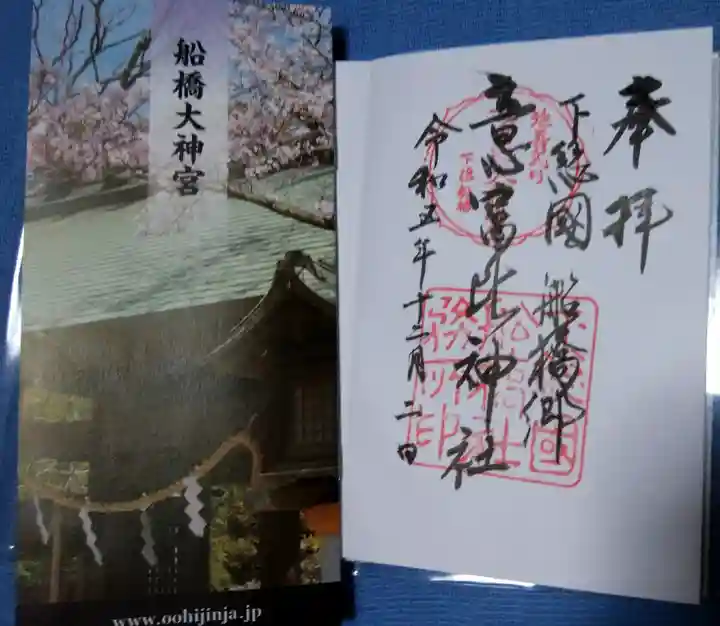 船橋大神宮
www.oohijinja.jp
奉拝
下総國 船橋郷
意富比神社
令和五年十二月二日